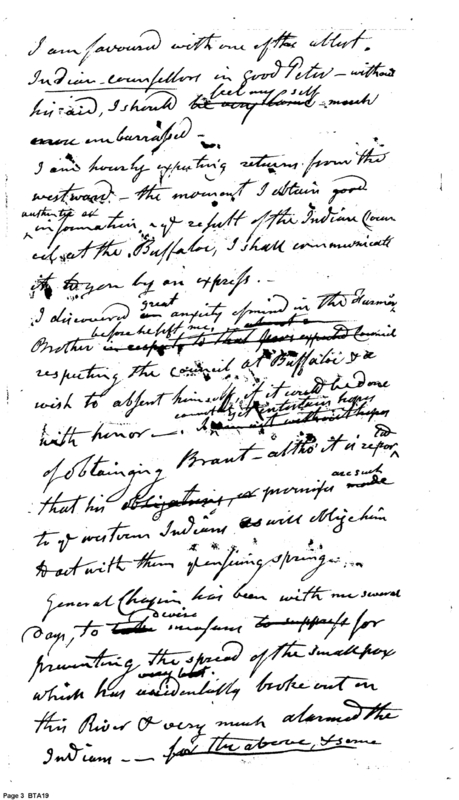 I am favoured with one of the ablest
Indian counsellors in good Peter – without
feel my self
his aid, I should be very lame much
more embarrassed –
I am hourly expecting returns from the
westward – the moment I obtain good
authentic
information of ye result of the Indian Coun
cil at the Buffaloe, I shall communicate
it to you by an express. –
great
I discovered an anxiety of mind in the Farmers
before he left me,
Brother in respect to that Council
respecting the council at Buffaloe & a
wish to absent himself, if it could be done
yet entertain hopes
with honor – I am not without hopes
of obtaining Brant – altho' it is repor
ted
are such
that his obligations, or promises made
to ye western Indians as will oblige him
to act with them ye ensuing spring –
General Chapin has been with me several
devise
Days, to take measures to suppress for
preventing the spread of the small pox
very lat
which has accidentally broke out on
this River & very much alarmed the
Indians – – for the above, & some
Page 3 BTA19